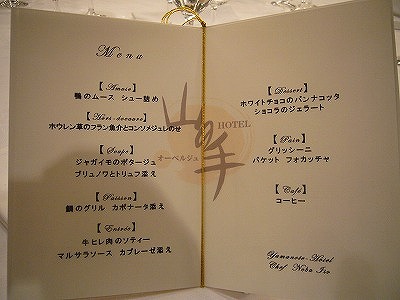 Menu
【Amuse】
鴨のムース シュー詰め
【Hors-doeuvre】
ホウレン草のフラン魚介とコンソメジュレのせ
【Soupe】
ジャガイモのポタージュ
ブリュノワとトリュフ添え
【Poisson】
鯛のグリル カポナータ添え
【Entrée】
牛ヒレ肉のソティー
マルサラソース カプレーゼ添え
山の手
HOTEL
オーベルジュ
【Dessert】
ホワイトチョコのパンナコッタ
ショコラのジェラート
【Pain】
グリッシーニ
バケット フォカッチャ
【Café】
コーヒー
Yamanote Hotel
Chef Nobu Ito